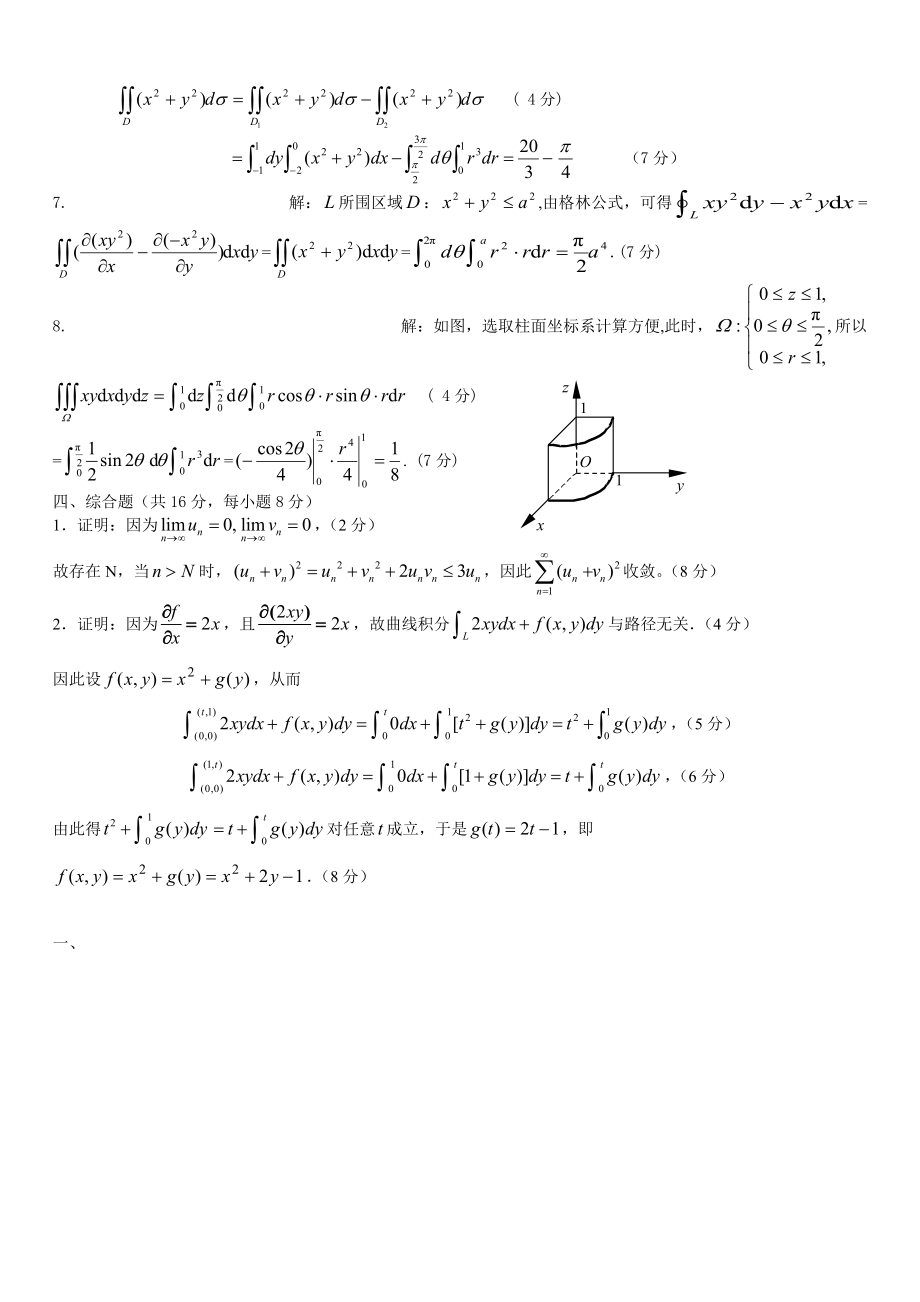 ∬_D (x² + y²)dσ = ∬_{D₁} (x² + y²)dσ − ∬_{D₂} (x² + y²)dσ （ 4 分)
= ∫_{−1}^{1} dy ∫_{−2}^{0} (x² + y²)dx − ∫_{π/2}^{3π/2} dθ ∫_0^1 r³dr = 20/3 − π/4 （7 分）
7. 解：L 所围区域 D：x² + y² ≤ a² ,由格林公式，可得 ∮_L xy²dy − x²ydx =
∬_D (∂(xy²)/∂x − ∂(−x²y)/∂y)dxdy = ∬_D (x² + y²)dxdy = ∫_0^{2π} dθ ∫_0^a r² · rdr = π/2 a⁴ . (7 分)
8. 解：如图，选取柱面坐标系计算方便,此时，Ω : { 0 ≤ z ≤ 1, 0 ≤ θ ≤ π/2, 0 ≤ r ≤ 1, 所以
∭_Ω xydxdydz = ∫_0^1 dz ∫_0^{π/2} dθ ∫_0^1 r cosθ · r sinθ · rdr （ 4 分)
= ∫_0^{π/2} 1/2 sin 2θ dθ ∫_0^1 r³dr = (− cos 2θ/4)|_0^{π/2} · r⁴/4|_0^1 = 1/8 . (7 分)
z
1
O
1
y
x
四、综合题（共 16 分，每小题 8 分）
1．证明：因为 lim_{n→∞} uₙ = 0, lim_{n→∞} vₙ = 0，（2 分）
故存在 N，当 n > N 时，(uₙ + vₙ)² = uₙ² + vₙ² + 2uₙvₙ ≤ 3uₙ，因此 ∑_{n=1}^{∞} (uₙ + vₙ)² 收敛。（8 分）
2．证明：因为 ∂f/∂x = 2x，且 ∂(2xy)/∂y = 2x，故曲线积分 ∫_L 2xydx + f(x, y)dy 与路径无关．（4 分）
因此设 f(x, y) = x² + g(y)，从而
∫_{(0,0)}^{(t,1)} 2xydx + f(x, y)dy = ∫_0^t 0dx + ∫_0^1 [t² + g(y)]dy = t² + ∫_0^1 g(y)dy，（5 分）
∫_{(0,0)}^{(1,t)} 2xydx + f(x, y)dy = ∫_0^1 0dx + ∫_0^t [1 + g(y)]dy = t + ∫_0^t g(y)dy，（6 分）
由此得 t² + ∫_0^1 g(y)dy = t + ∫_0^t g(y)dy 对任意 t 成立，于是 g(t) = 2t − 1，即
f(x, y) = x² + g(y) = x² + 2y − 1．（8 分）
一、